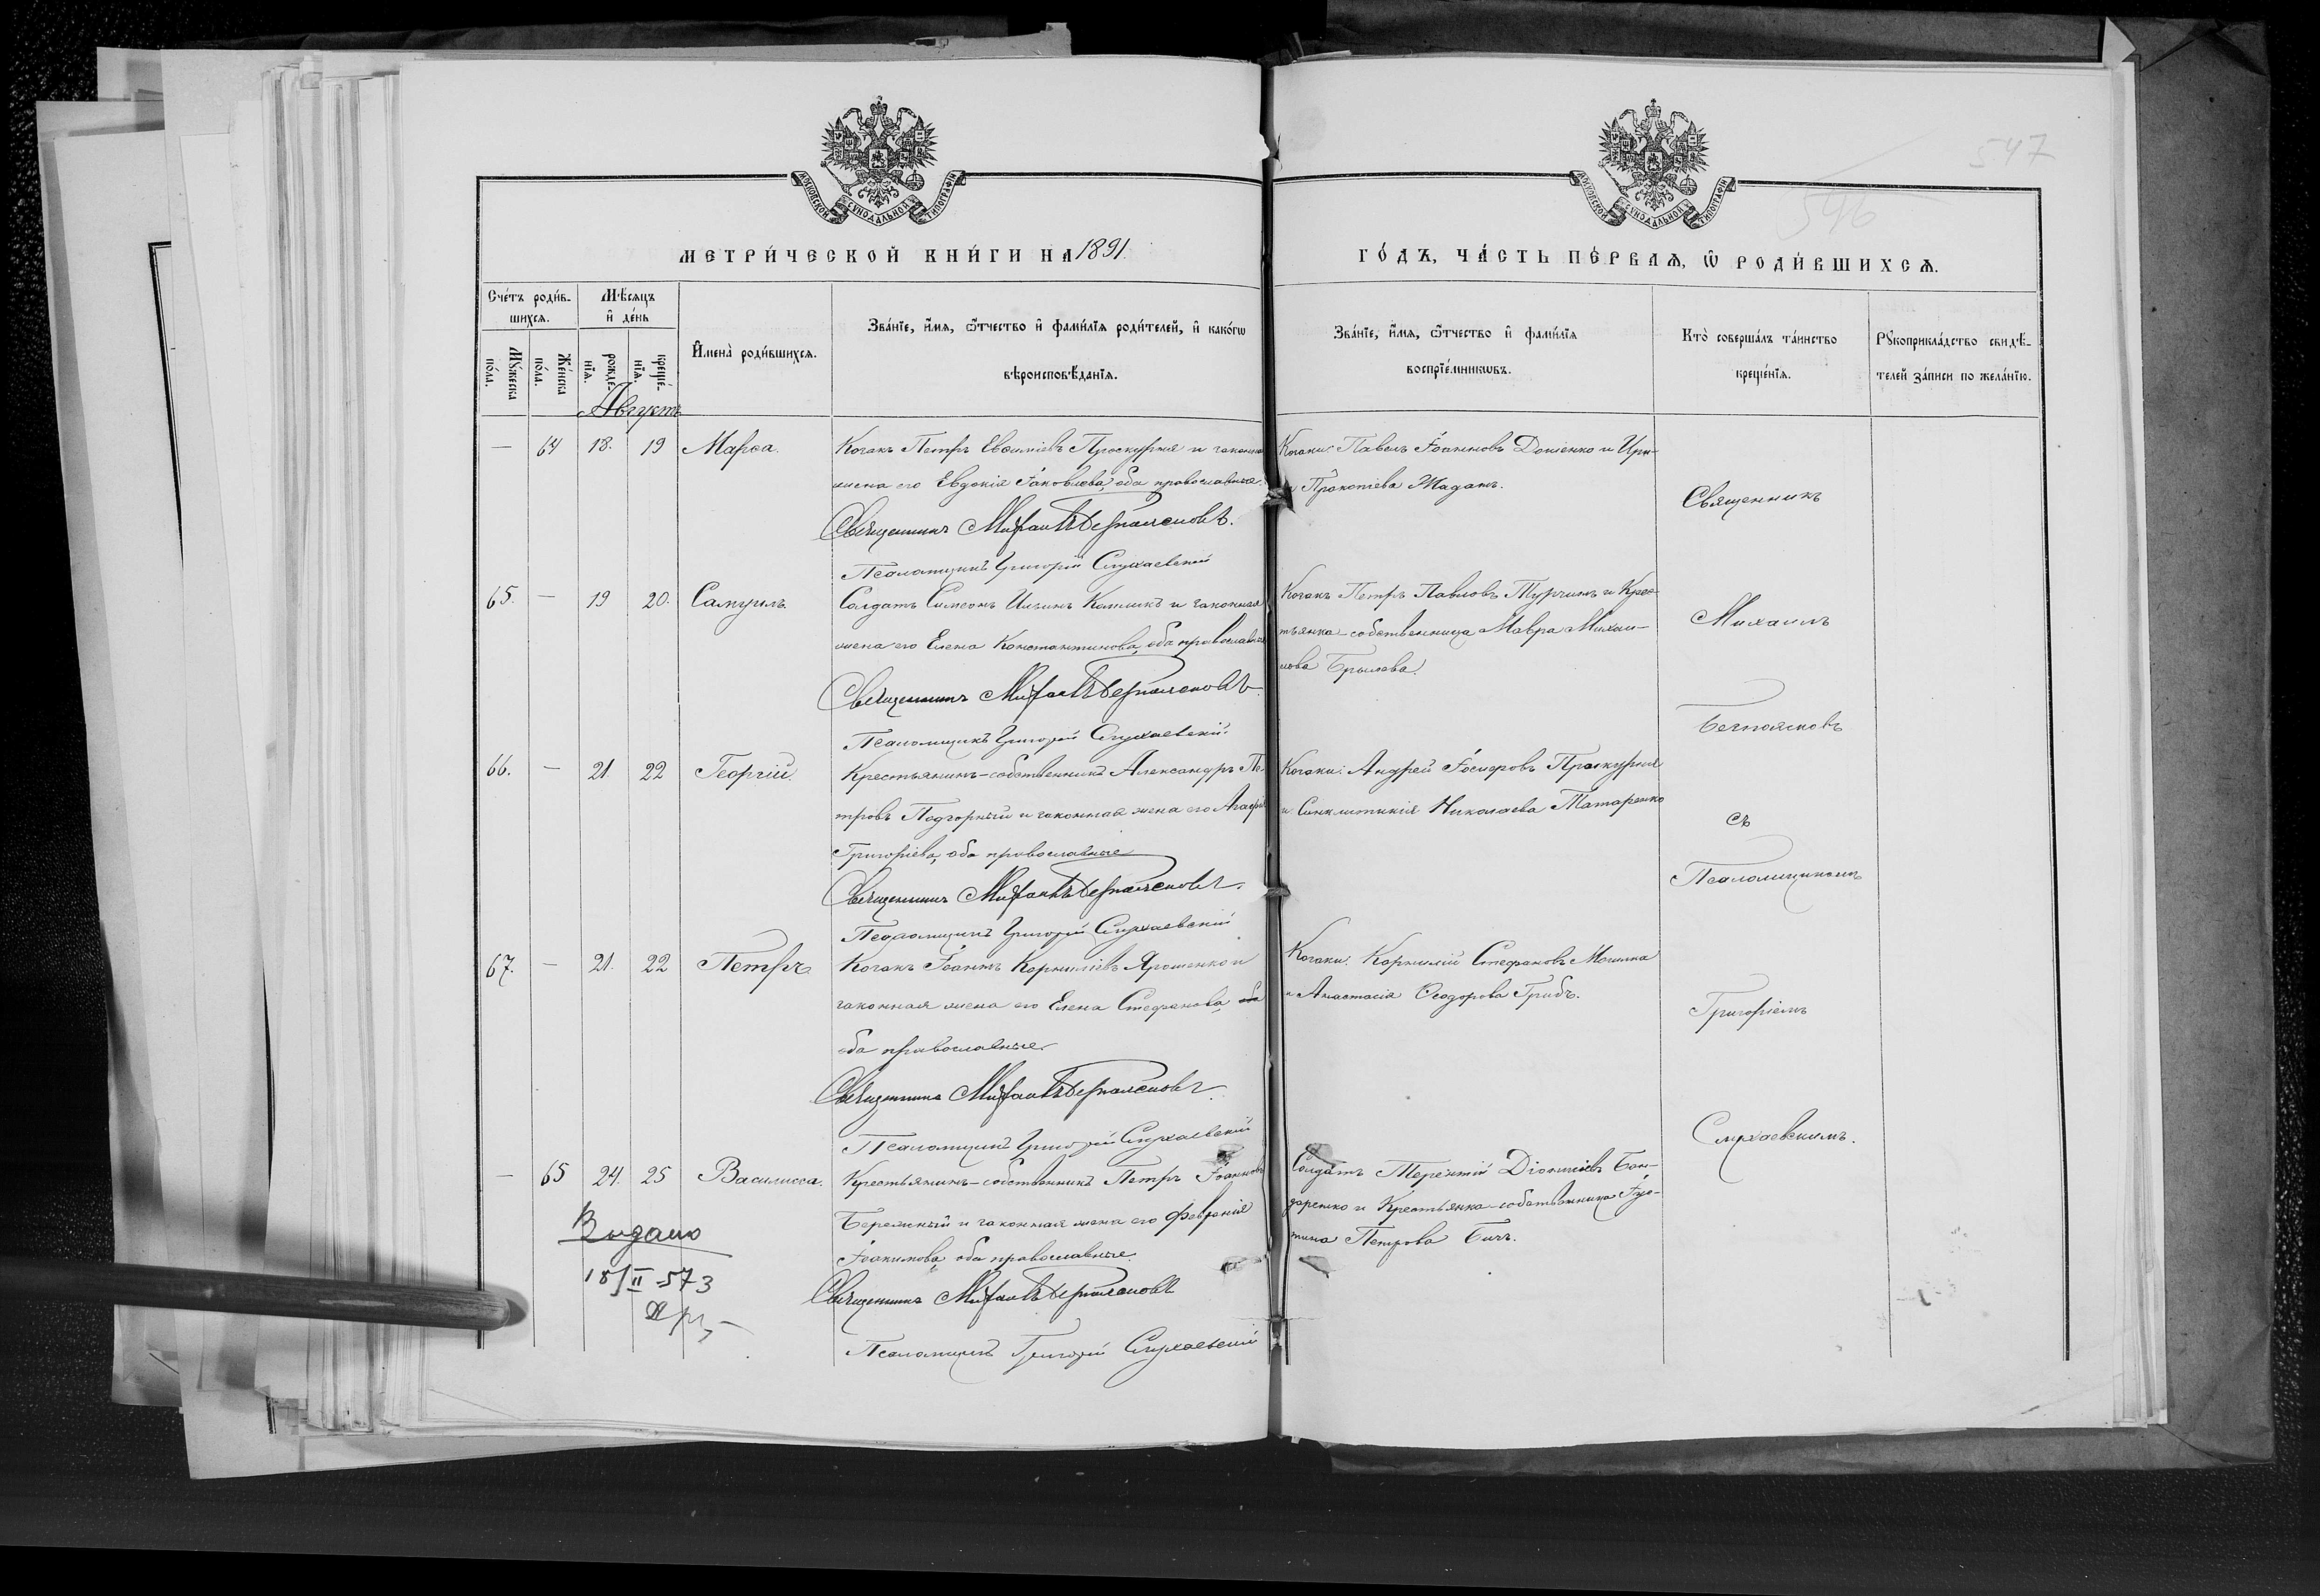 547
596
МОСКОВСКОЙ СѴНОДАЛЬНОЙ ТИПОГРАФІИ
МОСКОВСКОЙ СѴНОДАЛЬНОЙ ТИПОГРАФІИ
МЕТРИ́ЧЕСКОЙ КНИ́ГИ НА 1891.
ГО́ДЪ, ЧА́СТЬ ПЕ́РВАѦ, Ѡ РОДИ́ВШИХСѦ.
Сче́тъ роди́в-
шихсѧ.
Мѣ́сѧцъ
и҆ де́нь
Му́жеска
по́ла.
Же́нска
по́ла.
рожде́-
нїѧ.
креще́-
нїѧ.
И҆мена̀ роди́вшихсѧ.
Зва́нїе, и҆́мѧ, ѻ҆́тчество и҆ фами́лїѧ роди́телей, и҆ како́гѡ
вѣроисповѣ́данїѧ.
Зва́нїе, и҆́мѧ, ѻ҆́тчество и҆ фами́лїѧ
воспрїе́мникѡвъ.
Кто̀ соверша́лъ та́инство
креще́нїѧ.
Рꙋкоприкла́дство свидѣ́-
телей за́писи по жела́нїю.
Августъ
— 64 18. 19 Марѳа.
Козакъ Петръ Евѳиміевъ Проскурня и законная
жена его Евдокія Іаковлева, оба православные.
Священникъ Михаилъ
Псаломщикъ Григорій Слухаевскій
Козаки: Павелъ Іоанновъ Доценко и Ири-
на Прокопіева Жадатъ.
65. — 19 20. Самуилъ.
Солдатъ Симеонъ Ильинъ и законная
жена его Елена Константинова, оба православные
Священникъ Михаилъ
Псаломщикъ Григорій Слухаевскій.
Козакъ Петръ Павловъ Турчинъ и Крес-
тьянка-собственница Мавра Михаи-
лова
66. — 21 22 Георгій.
Крестьянинъ-собственникъ Александръ Пе-
тровъ Подгорный и законная жена его Агафія
Григоріева, оба православные
Священникъ Михаилъ
Псаломщикъ Григорій Слухаевскій
Козаки: Андрей Іосифовъ Проскурня
и Синклитикія Николаева Татаренко
67. — 21. 22 Петръ
Козакъ Іоаннъ Корниліевъ Ярошенко и
законная жена его Елена Стефанова, оба
оба православные.
Священникъ Михаилъ
Псаломщикъ Григорій Слухаевскій
Козаки: Корнилій Стефановъ Могилка
и Анастасія Ѳеодорова Грибъ.
— 65 24. 25 Василисса.
Крестьянинъ-собственникъ Петръ Іоанновъ
и законная жена его Февронія
Іоакимова, оба православные.
Священникъ Михаилъ
Псаломщикъ Григорій Слухаевскій
Солдатъ Терентій Діонисіевъ Бон-
даренко и Крестьянка-собственница Іус-
тина Петрова Бигъ.
Видано
18/II-573
Священникъ
Михаилъ
съ
Псаломщикомъ
Григоріемъ
Слухаевскимъ.